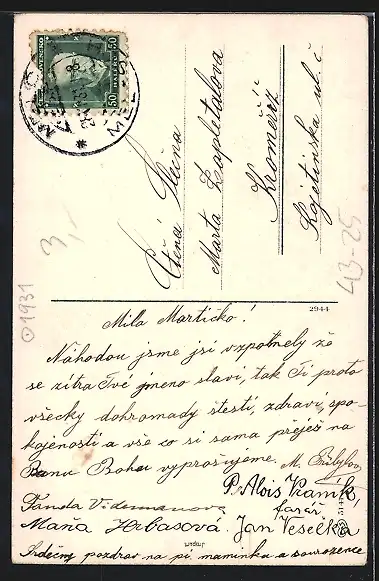 Ctěná Slečna
Marta Zaplětalova
Kroměříž
Kojetinska ul. č
3,-
43-25
⊙1931
2944
Mila Martičko!
Náhodou jsme jsi vzpoměly že
se zitra Tvé jmeno slavi, tak Ti proto
všecky dohromady štestí, zdravi, spo-
kojenosti a vše co si sama preješ na
Panu Bohu vyprošujeme. M.
P. Alois Kranik,
farář
Fanda Vidermanova
Maňa Hrbasová. Jan Veselka
Srdečný pozdrav na pí. maminku a sourozence
50 50